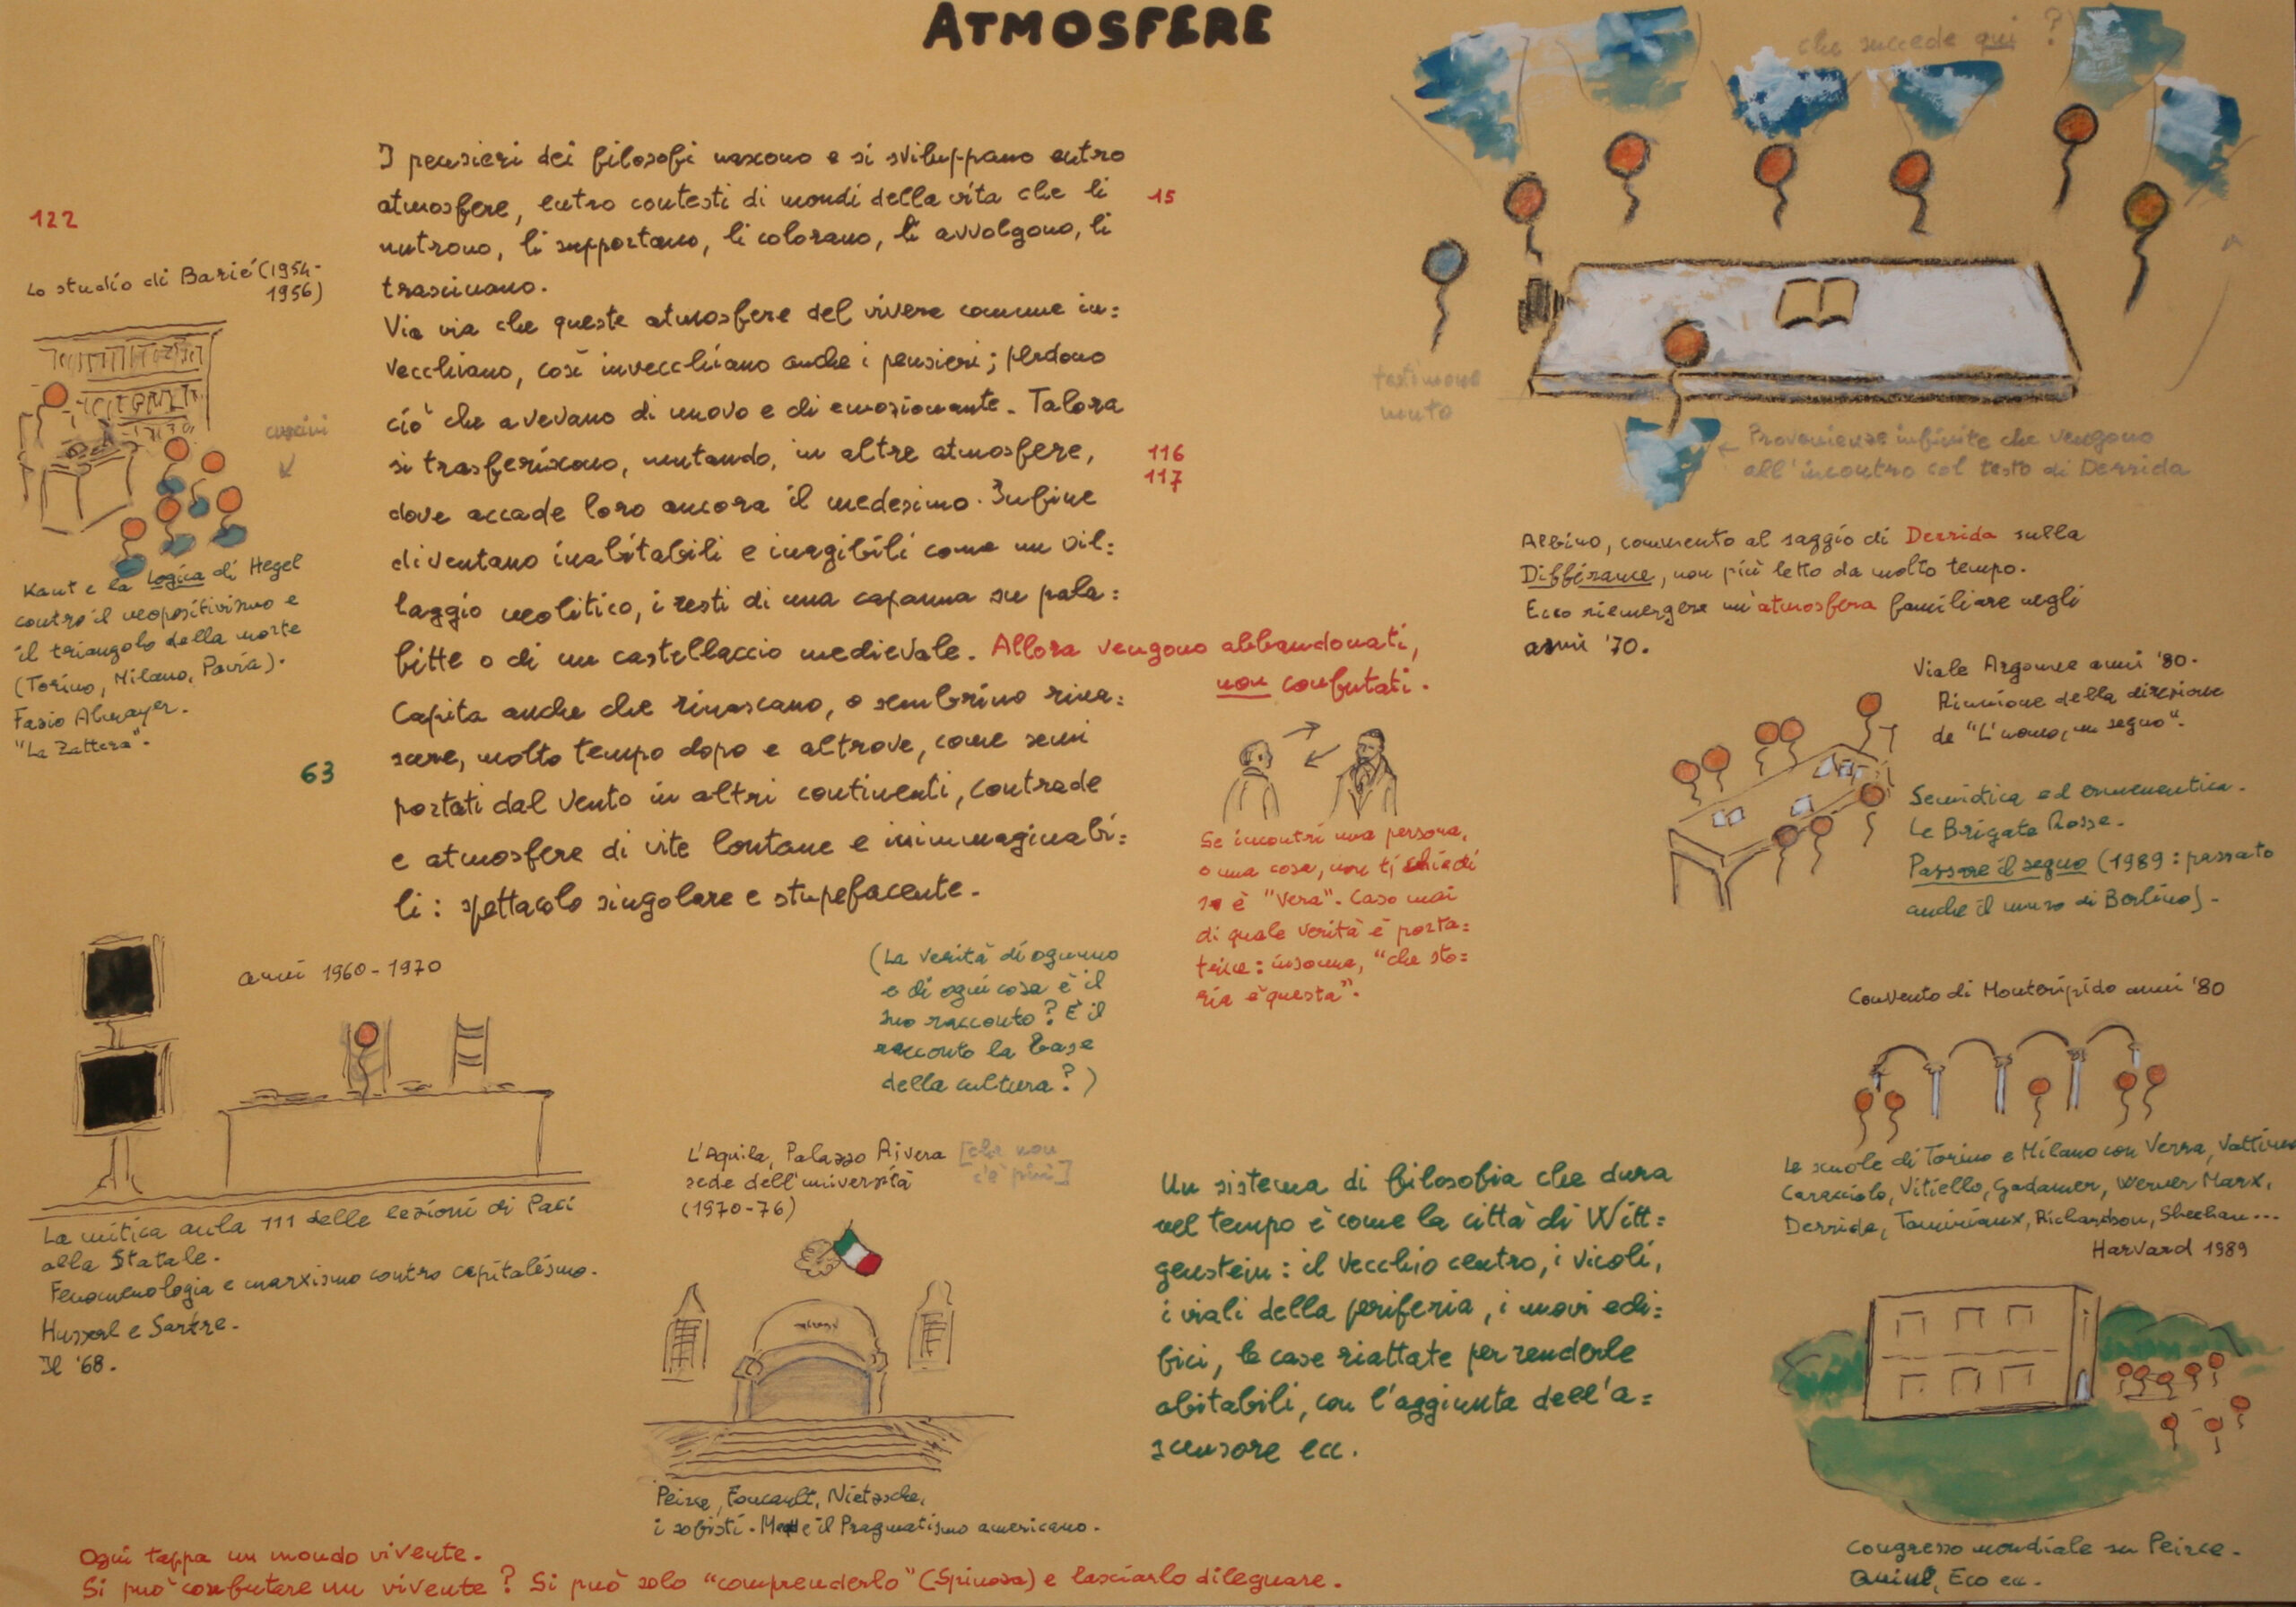 ATMOSFERE
I pensieri dei filosofi nascono e si sviluppano entro
atmosfere, entro contesti di mondi della vita che li
nutrono, li supportano, li colorano, li avvolgono, li
trascinano.
15
Via via che queste atmosfere del vivere comune in=
vecchiano, così invecchiano anche i pensieri; perdono
ciò che avevano di nuovo e di emozionante. Talora
si trasferiscono, mutando, in altre atmosfere,
116
117
dove accade loro ancora il medesimo. Infine
diventano inabitabili e inagibili come un vil=
laggio neolitico, i resti di una capanna su pala=
fitte o di un castellaccio medievale. Allora vengono abbandonati,
non confutati.
Capita anche che rinascano, o sembrino rina=
scere, molto tempo dopo e altrove, come semi
63
portati dal vento in altri continenti, contrade
e atmosfere di vite lontane e inimmaginabi=
li: spettacolo singolare e stupefacente.
122
Lo studio di Barié (1954-
1956)
cuscini
Kant e la Logica di Hegel
contro il neopositivismo e
il triangolo della morte
(Torino, Milano, Pavia).
Fazio Almayer.
"La Zattera".
che succede qui?
testimone
muto
Provenienze infinite che vengono
all'incontro col testo di Derrida
Albino, commento al saggio di Derrida sulla
Différance, non più letto da molto tempo.
Ecco riemergere un'atmosfera familiare negli
anni '70.
Viale Argonne anni '80.
Riunione della direzione
de "L'uomo, un segno".
Semiotica ed ermeneutica.
Le Brigate Rosse.
Passare il segno (1989: passato
anche il muro di Berlino).
Se incontri una persona,
o una cosa, non ti chiedi
se è "vera". Caso mai
di quale verità è porta=
trice: insomma, "che sto=
ria è questa".
(La verità di ognuno
e di ogni cosa è il
suo racconto? È il
racconto la base
della cultura?)
anni 1960-1970
La mitica aula 111 delle lezioni di Paci
alla Statale.
Fenomenologia e marxismo contro capitalismo.
Husserl e Sartre.
Il '68.
L'Aquila, Palazzo Rivera [che non
c'è più]
sede dell'università
(1970-76)
Peirce, Foucault, Nietzsche,
i sofisti. Mead e il Pragmatismo americano.
Un sistema di filosofia che dura
nel tempo è come la città di Witt=
genstein: il vecchio centro, i vicoli,
i viali della periferia, i nuovi edi=
fici, le case riattate per renderle
abitabili, con l'aggiunta dell'a=
scensore ecc.
Convento di Monteripido anni '80
Le scuole di Torino e Milano con Verra, Vattimo
Caracciolo, Vitiello, Gadamer, Werner Marx,
Derrida, Taminiaux, Richardson, Sheehan...
Harvard 1989
Congresso mondiale su Peirce.
Quine, Eco ecc.
Ogni tappa un mondo vivente.
Si può confutare un vivente? Si può solo "comprenderlo" (Spinoza) e lasciarlo dileguare.